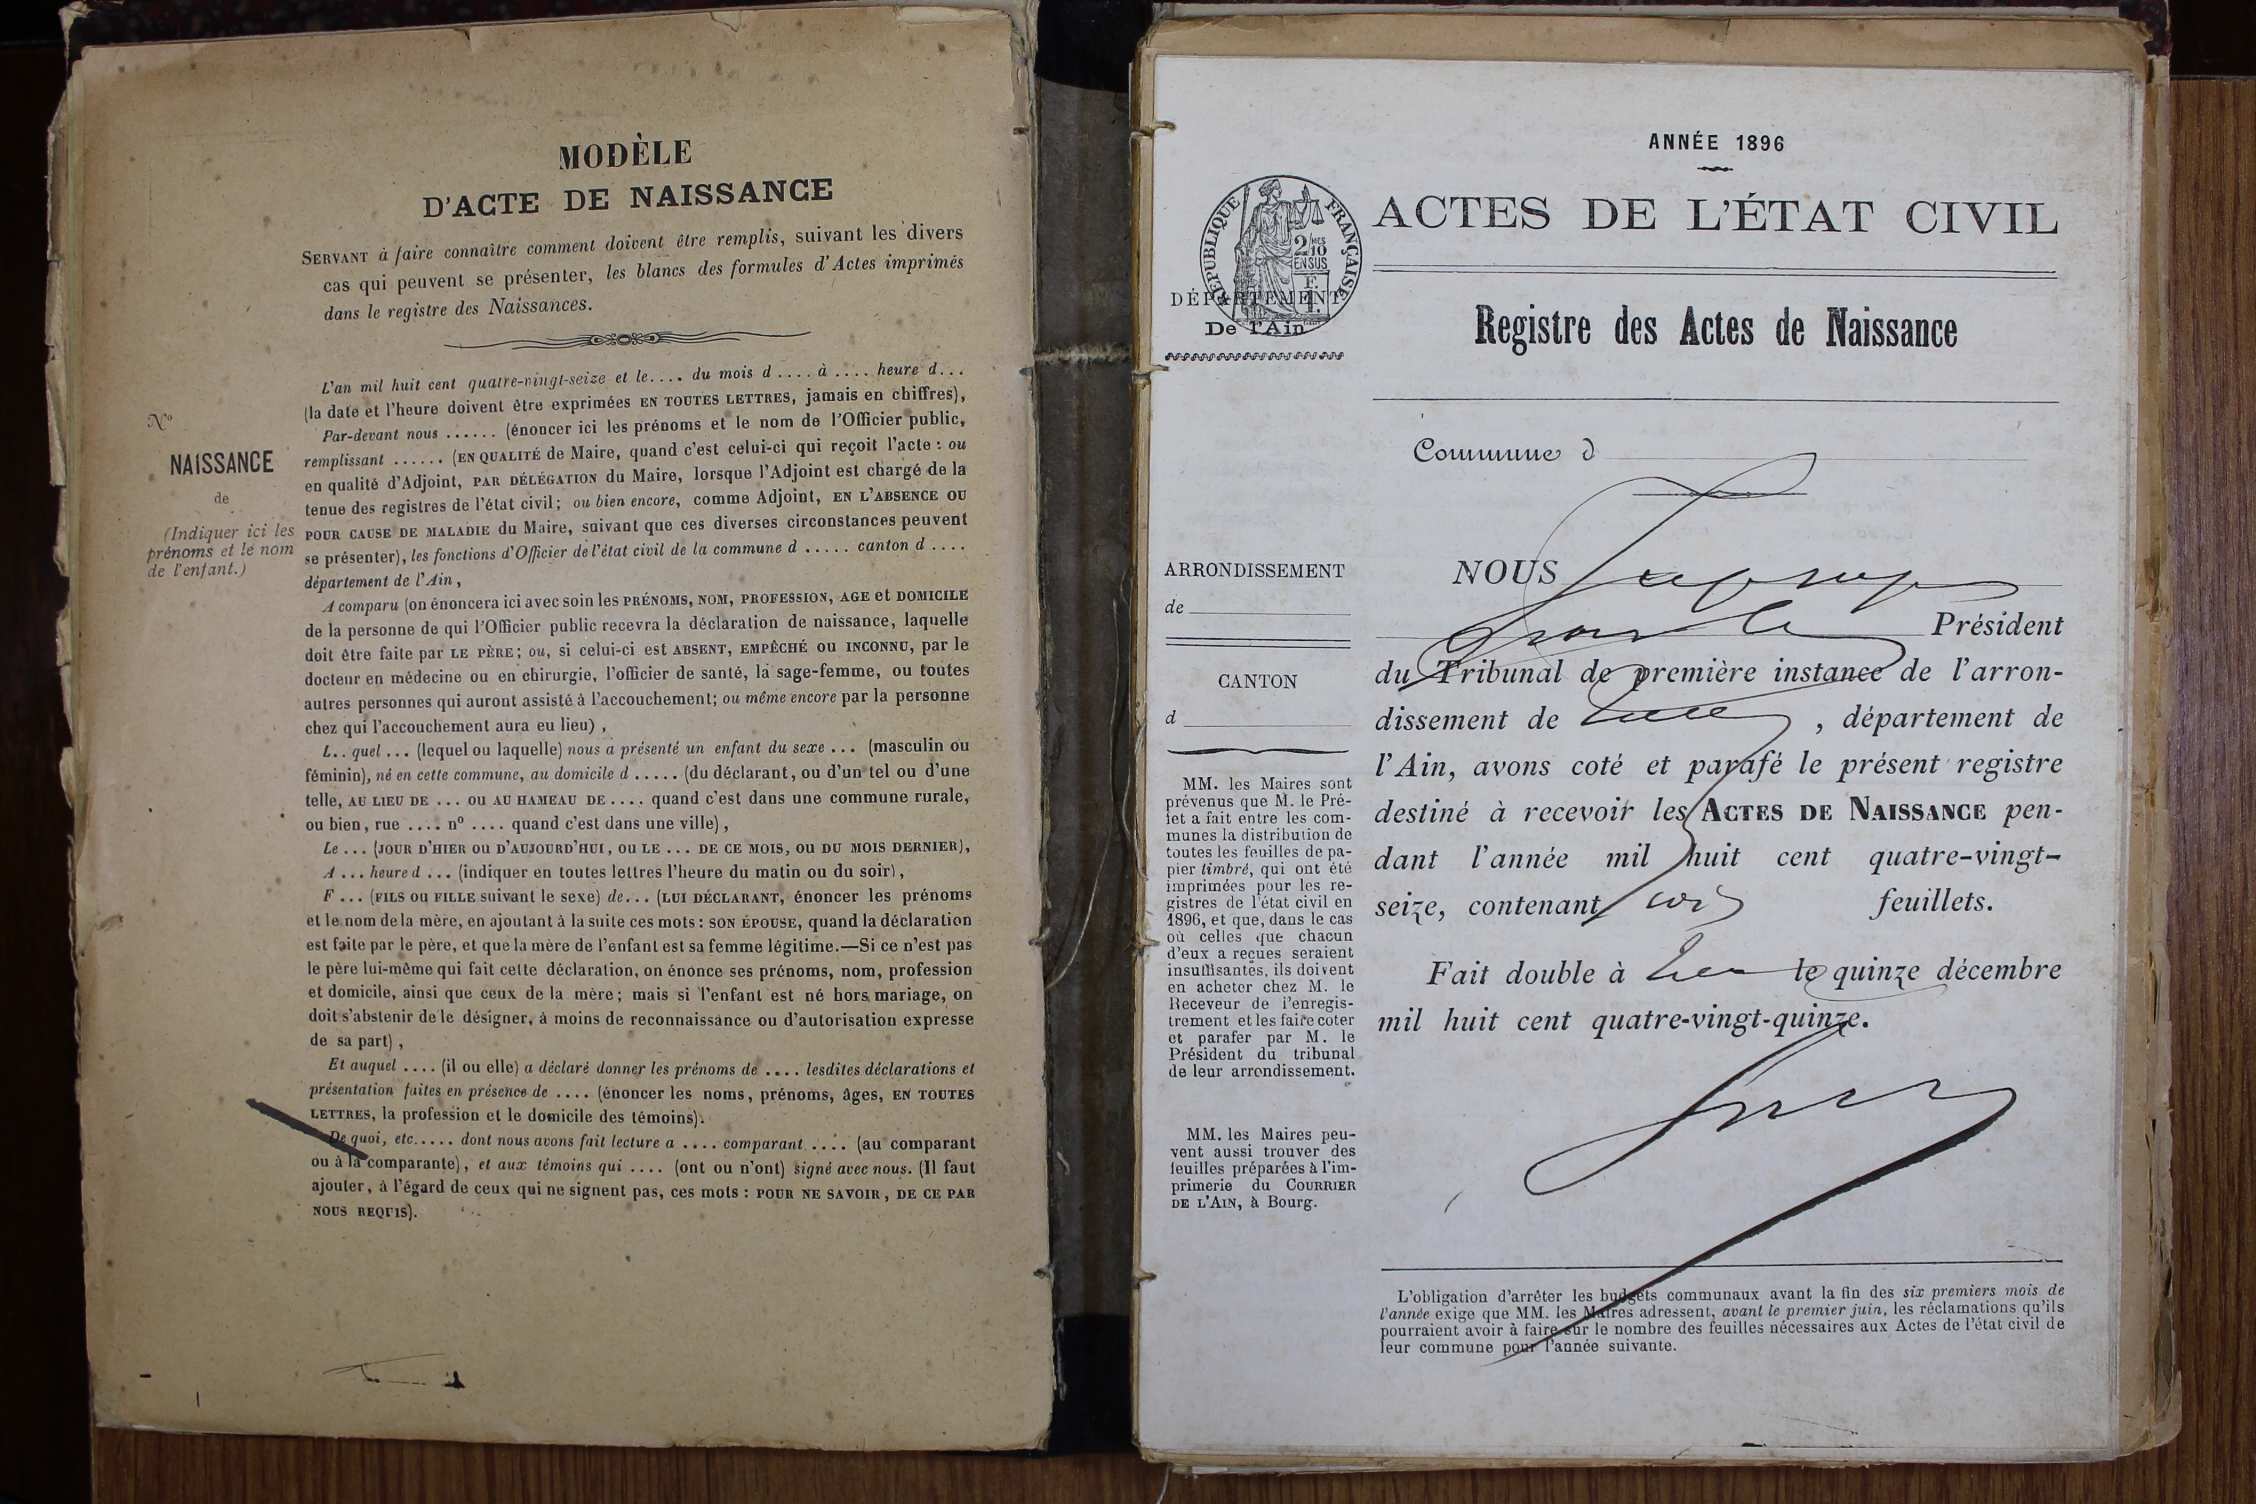 MODÈLE
D'ACTE DE NAISSANCE
SERVANT à faire connaître comment doivent être remplis, suivant les divers
cas qui peuvent se présenter, les blancs des formules d'Actes imprimés
dans le registre des Naissances.
N°
NAISSANCE
de
(Indiquer ici les
prénoms et le nom
de l'enfant.)
L'an mil huit cent quatre-vingt-seize et le.... du mois d .... à .... heure d...
(la date et l'heure doivent être exprimées EN TOUTES LETTRES, jamais en chiffres),
Par-devant nous ...... (énoncer ici les prénoms et le nom de l'Officier public,
remplissant ...... (EN QUALITÉ de Maire, quand c'est celui-ci qui reçoit l'acte : ou
en qualité d'Adjoint, PAR DÉLÉGATION du Maire, lorsque l'Adjoint est chargé de la
tenue des registres de l'état civil; ou bien encore, comme Adjoint, EN L'ABSENCE OU
POUR CAUSE DE MALADIE du Maire, suivant que ces diverses circonstances peuvent
se présenter), les fonctions d'Officier de l'état civil de la commune d ..... canton d ....
département de l'Ain,
A comparu (on énoncera ici avec soin les PRÉNOMS, NOM, PROFESSION, AGE et DOMICILE
de la personne de qui l'Officier public recevra la déclaration de naissance, laquelle
doit être faite par LE PÈRE; ou, si celui-ci est ABSENT, EMPÊCHÉ OU INCONNU, par le
docteur en médecine ou en chirurgie, l'officier de santé, la sage-femme, ou toutes
autres personnes qui auront assisté à l'accouchement; ou même encore par la personne
chez qui l'accouchement aura eu lieu),
L.. quel ... (lequel ou laquelle) nous a présenté un enfant du sexe ... (masculin ou
féminin), né en cette commune, au domicile d ..... (du déclarant, ou d'un tel ou d'une
telle, AU LIEU DE ... OU AU HAMEAU DE .... quand c'est dans une commune rurale,
ou bien, rue .... n° .... quand c'est dans une ville),
Le ... (JOUR D'HIER OU D'AUJOURD'HUI, OU LE ... DE CE MOIS, OU DU MOIS DERNIER),
A ... heure d ... (indiquer en toutes lettres l'heure du matin ou du soir),
F ... (FILS OU FILLE suivant le sexe) de... (LUI DÉCLARANT, énoncer les prénoms
et le nom de la mère, en ajoutant à la suite ces mots : SON ÉPOUSE, quand la déclaration
est faite par le père, et que la mère de l'enfant est sa femme légitime.—Si ce n'est pas
le père lui-même qui fait cette déclaration, on énonce ses prénoms, nom, profession
et domicile, ainsi que ceux de la mère; mais si l'enfant est né hors mariage, on
doit s'abstenir de le désigner, à moins de reconnaissance ou d'autorisation expresse
de sa part),
Et auquel .... (il ou elle) a déclaré donner les prénoms de .... lesdites déclarations et
présentation faites en présence de .... (énoncer les noms, prénoms, âges, EN TOUTES
LETTRES, la profession et le domicile des témoins).
De quoi, etc..... dont nous avons fait lecture a .... comparant .... (au comparant
ou à la comparante), et aux témoins qui .... (ont ou n'ont) signé avec nous. (Il faut
ajouter, à l'égard de ceux qui ne signent pas, ces mots : POUR NE SAVOIR, DE CE PAR
NOUS REQUIS).
ANNÉE 1896
RÉPUBLIQUE FRANÇAISE
2/10MES
EN SUS
ACTES DE L'ÉTAT CIVIL
DÉPARTEMENT
De l'Ain
Registre des Actes de Naissance
Commune d
ARRONDISSEMENT
de
CANTON
d
MM. les Maires sont
prévenus que M. le Pré-
fet a fait entre les com-
munes la distribution de
toutes les feuilles de pa-
pier timbré, qui ont été
imprimées pour les re-
gistres de l'état civil en
1896, et que, dans le cas
où celles que chacun
d'eux a reçues seraient
insuffisantes, ils doivent
en acheter chez M. le
Receveur de l'enregis-
trement et les faire coter
et parafer par M. le
Président du tribunal
de leur arrondissement.
MM. les Maires peu-
vent aussi trouver des
feuilles préparées à l'im-
primerie du COURRIER
DE L'AIN, à Bourg.
NOUS
Président
du Tribunal de première instance de l'arron-
dissement de , département de
l'Ain, avons coté et parafé le présent registre
destiné à recevoir les ACTES DE NAISSANCE pen-
dant l'année mil huit cent quatre-vingt-
seize, contenant feuillets.
Fait double à le quinze décembre
mil huit cent quatre-vingt-quinze.
L'obligation d'arrêter les budgets communaux avant la fin des six premiers mois de
l'année exige que MM. les Maires adressent, avant le premier juin, les réclamations qu'ils
pourraient avoir à faire sur le nombre des feuilles nécessaires aux Actes de l'état civil de
leur commune pour l'année suivante.